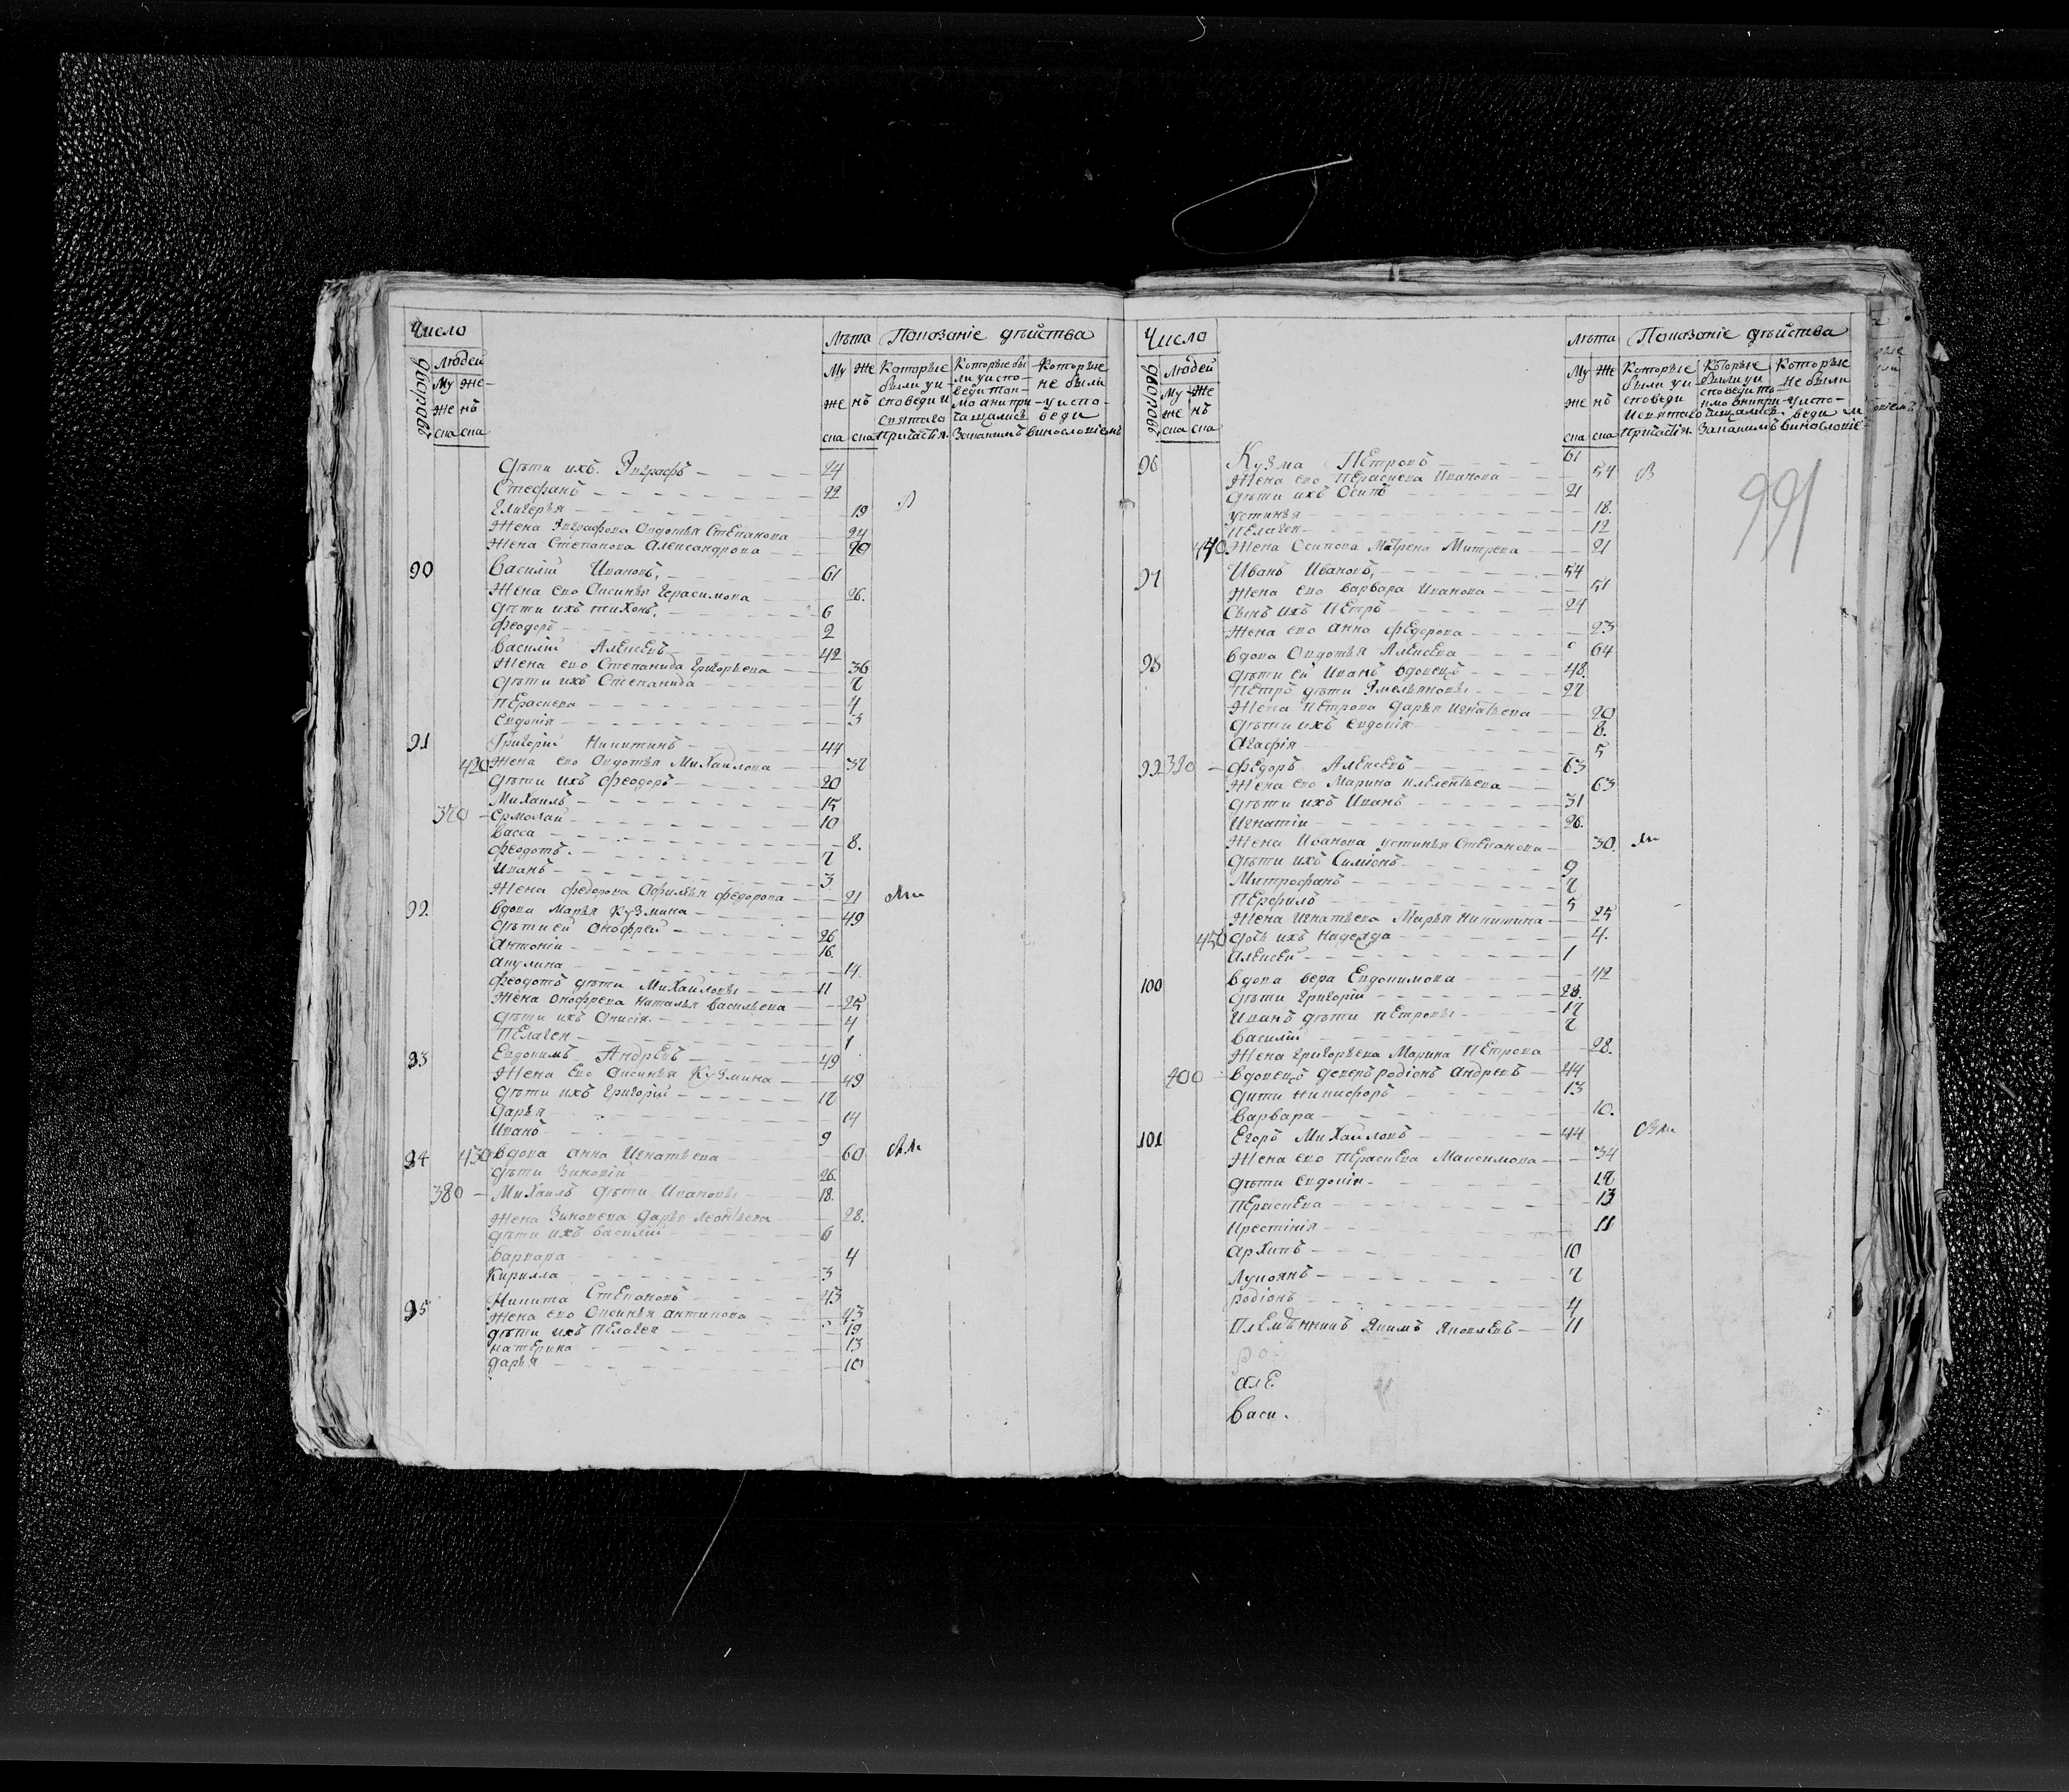 Число
Лѣта Показаніе дѣйства
дворовъ
Людей
Му Же
же нъ
ска ска
Му Же
же нъ
ска ска
Которые были у исповеди и святаго причастія
Которые были у исповеди токмо а не причащались
Которые не были у исповеди
Дѣти ихъ Эиграфъ 24
Стефанъ 22
Гликерья 19
Жена Эиграфова Овдотья Степанова 24
Жена Степанова Александрова 20
90 Василий Ивановъ 61
Жена ево Оксинья Герасимова 26.
Дѣти ихъ тихонъ 6
Феодоръ 2
Василий Алексѣевъ 42
Жена ево Степанида Григорьева 36
Дѣти ихъ Степанида 7
Пераскева 4
Евдокія 3
91 Григорій Никитинъ 44
420 Жена ево Овдотья Михайлова 37
Дѣти ихъ Феодоръ 20
Михаилъ 15
370 Ермолай 10
Васса 8.
Феодотъ 7
Иванъ 3
Жена Федорова Офимья Федорова 21
92 вдова Марья Кузмина 49
Дѣти ей Онофрей 26
Антоній 16.
Акулина 14
Феодотъ дѣти Михайловы 11
Жена Онофрева Наталья Васильева 25
Дѣти ихъ Онисія 4
Пелагея 1
93 Евдокимъ Андрѣевъ 49
Жена Ево Оксинья Кузмина 49
Дѣти ихъ Григорій 17
Дарья 14
Иванъ 9
94 430 Вдова анна Игнатьева 60
Дѣти Зиновій 26.
380 Михаилъ дѣти Ивановы 18.
Жена Зиновева Дарья Леонтьева 28.
Дѣти ихъ Василій 6
Варвара 4
Кирилла 3
95 Никита Степановъ 43
Жена ево Оксинья антипова 43
Дѣти ихъ Пелагея 19
Катерина 13
Дарья 10
Число
Лѣта Показаніе дѣйства
дворовъ
Людей
Му Же
же нъ
ска ска
Му Же
же нъ
ска ска
991
96 Кузма Петровъ 61
Жена ево Пераскева Иванова 54
Дѣти ихъ Осипъ 21
Устинья 18.
Пелагея 12
440 Жена Осипова Матрена Митрева 21
97 Иванъ Ивановъ 54
Жена ево Варвара Иванова 51
Сынъ ихъ Петръ 24
Жена ево анна Федорова 23
98 Вдова Овдотья Алексѣева 64
Дѣти ей Иванъ вдовецъ 48.
Петръ дѣти Эмельяновы 27
Жена Петрова Дарья Игнатьева 20
Дѣти ихъ Евдокія 8.
Агафія 5
99 390 Федоръ Алексѣевъ 63
Жена ево Марина 63
Дѣти ихъ Иванъ 31
Игнатій 26.
Жена Иванова Устинья Степанова 30.
Дѣти ихъ Симіонъ 9
Митрофанъ 7
Перфилъ 5
Жена Игнатьева Марья Никитина 25
450 Дочь ихъ Надежда 4.
Алексѣй 1
100 Вдова Вера Евдокимова 42
Дѣти Григорій 28.
Иванъ дѣти Петровы 17
Василій 7
Жена Григорьева Марина Петрова 28.
400 Вдовецъ родіонъ Андрѣевъ 44
Дѣти Никифоръ 13
Варвара 10.
101 Егоръ Михайловъ 44
Жена ево Пераскева Максимова 34
Дѣти Евдокія 17
Пераскева 13
Крестинія 11
Архипъ 10
Лукоянъ 7
родіонъ 4
Племѣнникъ Якимъ Яковлевъ 11
ро.
Але.
Васи.